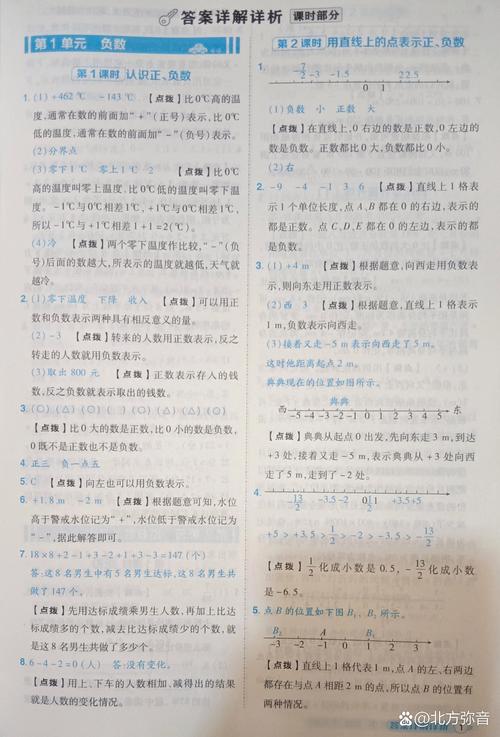 答案详解详析 课时部分
第1单元 负数
第1课时 认识正、负数
1. (1) +462 ℃ -143 ℃ 【点拨】比0℃高的温
度,通常在数的前面加“+”(正号)表示,比0℃
低的温度,通常在数的前面加“-”(负号)表示。
(2)分界点
(3)零下1℃ 零上1℃ 2 【点拨】比0℃
高的温度叫零上温度,比0℃低的温度叫零下温
度。-1℃与0℃相差1℃,+1℃与0℃相差1℃,
所以-1℃与+1℃相差1+1=2(℃)。
(4)冷 【点拨】两个零下温度作比较,“-”(负
号)后面的数越大,所表示的温度就越低,天气就
越冷。
2. (1)零下温度 下降 收入 【点拨】可以用正
数和负数表示两种具有相反意义的量。
(2)-3 【点拨】转来的人数用正数表示,反之
转走的人数就用负数表示。
(3)取出800元 【点拨】正数表示存入的钱
数,反之负数就表示取出的钱数。
3. (○)(△)(○)( )(○)(△)(△)(○)
【点拨】比0大的数是正数,比0小的数是负数,
0既不是正数也不是负数。
4. 正三 负一点五
5. C 【点拨】向左也可以用负数表示。
6. +1.8 m -2 m 【点拨】根据题意可知,水位
高于警戒水位记为“+”,水位低于警戒水位记为
“-”,据此解答即可。
7. 18×8+2-1+3-2+1+3-3=147(个)
答:这8名男生中有5名男生达标,这8名男生共
做了147个。
【点拨】先用达标成绩乘男生人数,再加上比达
标成绩多的个数,减去比达标成绩少的个数,就
是这8名男生共做了多少个。
8. 6-4-2=0(人) 答:没有变化。
【点拨】用上、下车的人数相加、减得出的结果
就是人数的变化情况。
第2课时 用直线上的点表示正、负数
1. -7/2 -3 -1.5 0 1 2 2.5
(1)负数 小 正数 大
【点拨】在直线上,0右边的数是正数,0左边的
数是负数。正数都比0大,负数都比0小。
(2)右
2. -9 -4 -1 3 6 【点拨】直线上1格表
示1个单位长度,点A、B都在0的右边,表示的
都是正数。点C、D、E都在0的左边,表示的都
是负数。
3. (1)+4 m 【点拨】根据题意,向西走用负数表
示,则向东走用正数表示。
(2)西 3 【点拨】根据题意,直线上1格表示
1 m,负数表示向西走。
(3)接着又走-5 m表示向西走了5 m。
这时他距离起点2 m。
典典现在的位置如下图所示。
典典
西 -5 -4 -3 -2 -1 0 1 2 3 4 5 东
【点拨】典典从起点0出发,先向东走3 m,到达
+3处,接着又走-5 m,表示典典从+3处向西
走了5 m,走到了-2处。
4.
-13/2 -5 -3.5 -2 0 1/2 1 +3.5 +5
+5>+3.5>1/2>-2>-3.5>-5>-13/2
【点拨】1/2化成小数是0.5,-13/2化成小数
是-6.5。
5. 点B的位置如下图B₁、B₂所示。
B₂ A B₁
-3 -2 -1 0 1 2 3
【点拨】直线上1格代表1 m,点A的左、右两边
都存在与点A相距2 m的点,所以点B的位置有
两种情况。
1
@北方弥音